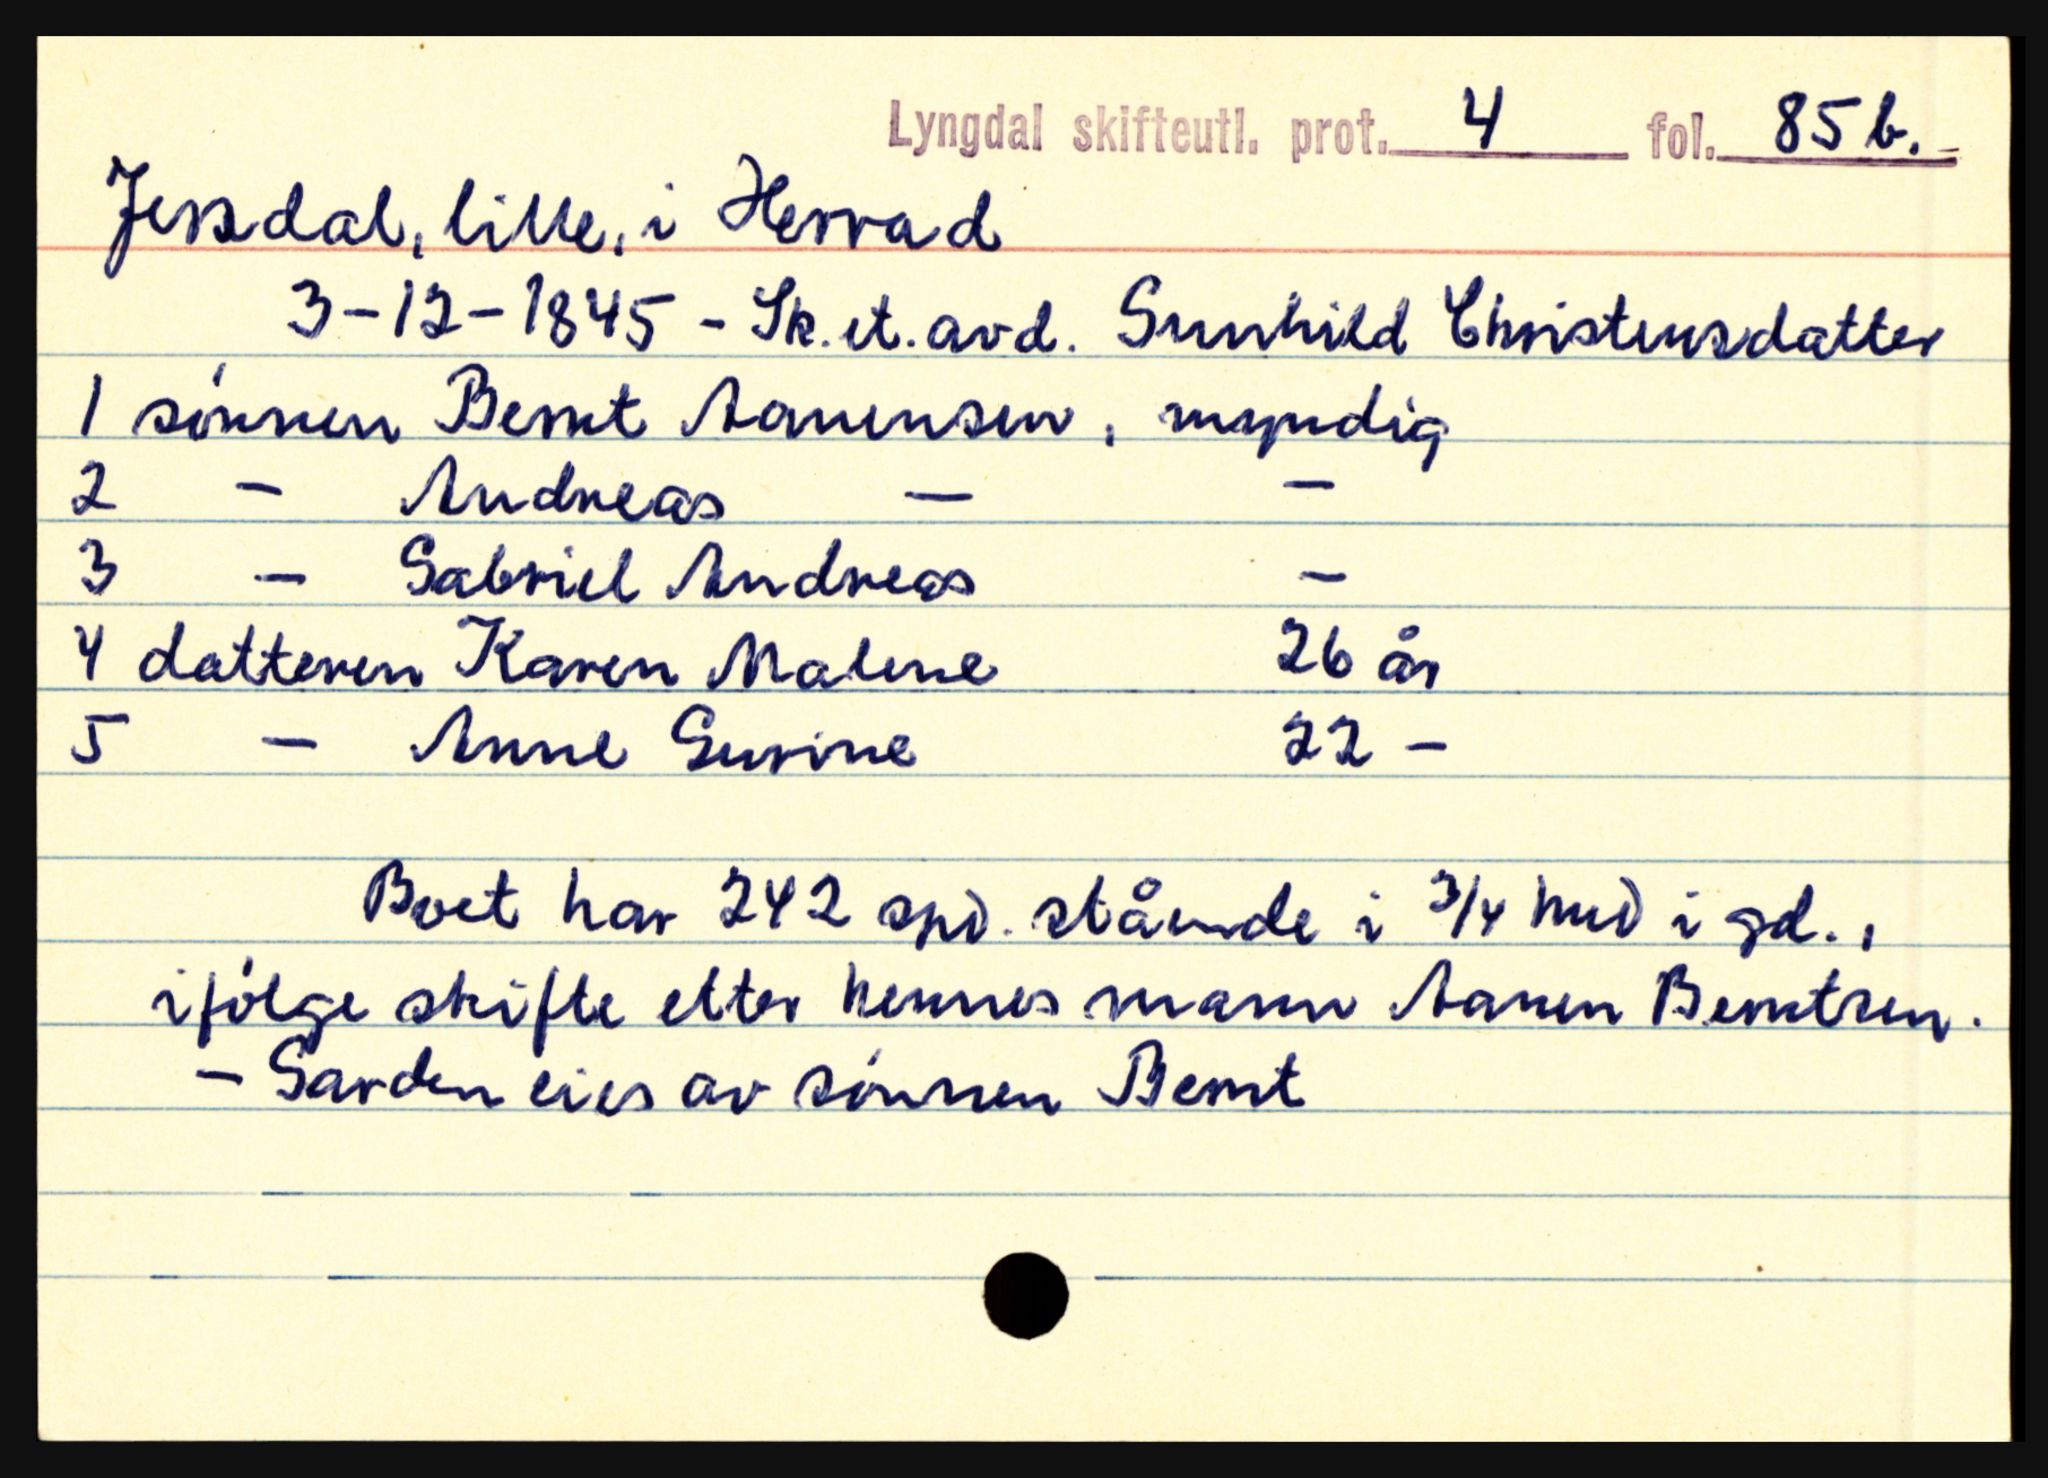 Lyngdal skifteutl. prot. 4 fol. 85 b.
Jerstdal, lille, i Herrad
3-12-1845 - Sk. et. avd. Gunhild Christensdatter
1 sønnen Bernt Aanensen, myndig
2 - Andreas - -
3 - Gabriel Andreas -
4 datteren Karen Malene 26 år
5 - Anne Gurine 22 -
Boet har 242 spd. stående i 3/4 hud i gd.,
ifølge skifte etter hennes mann Aanen Berntsen.
- Garden eies av sønnen Bernt